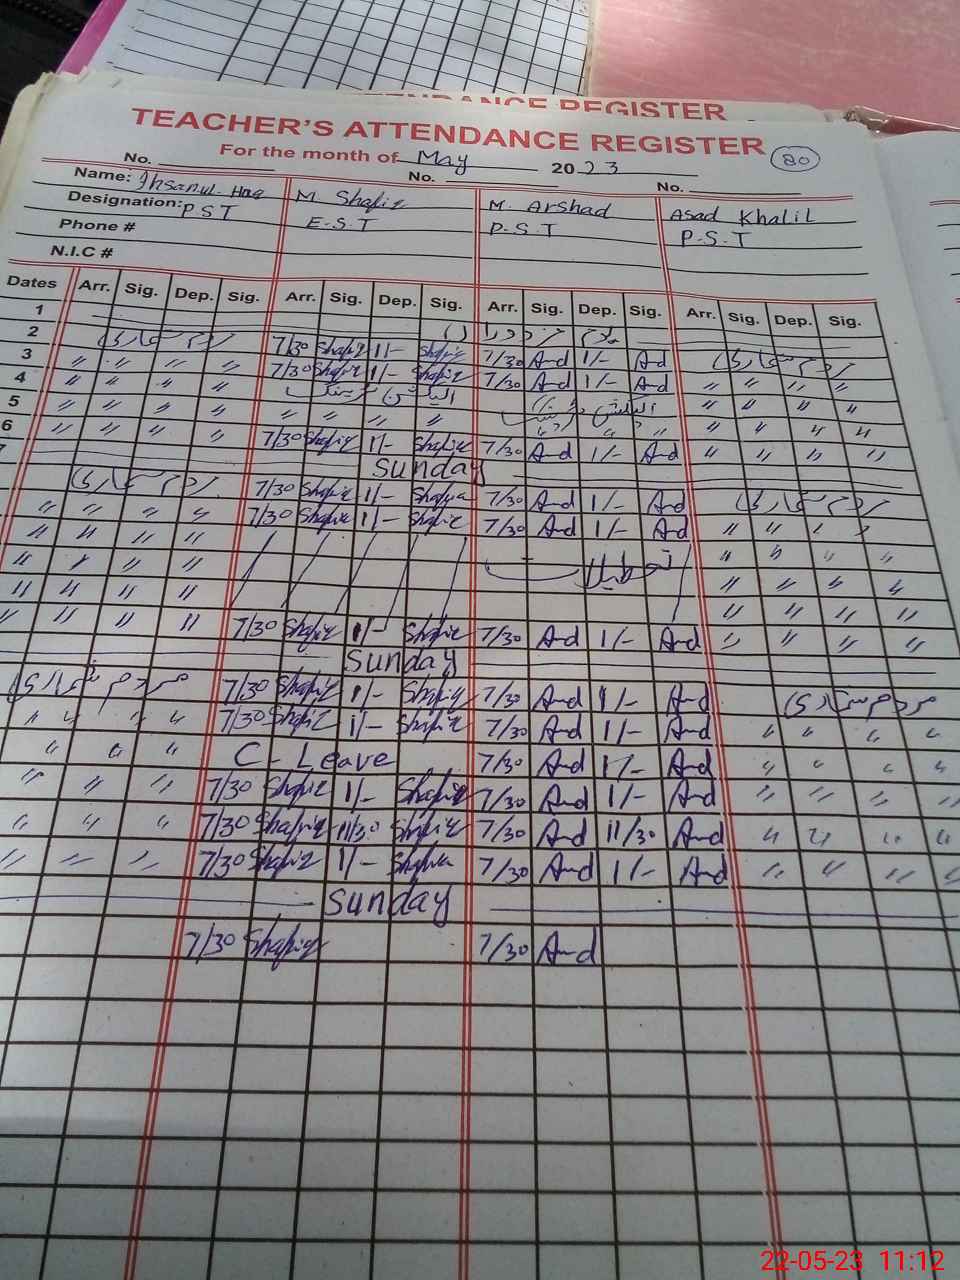 ATTENDANCE REGISTER
TEACHER'S ATTENDANCE REGISTER
For the month of May 2023 80
No. No. No.
Name: Ihsanul Haq M. Shafiq M. Arshad Asad Khalil
Designation: PST E.S.T P.S.T P.S.T
Phone #
N.I.C #
Dates Arr. Sig. Dep. Sig. Arr. Sig. Dep. Sig. Arr. Sig. Dep. Sig. Arr. Sig. Dep. Sig.
1
2 مردم شماری 7/30 Shafiq 1/- Shafiq 7/30 And 1/- And مردم شماری
3 " " " " 7/30 Shafiq 1/- Shafiq 7/30 And 1/- And " " " "
4 " " " " " " " "
5 " " " " " " " " " " " "
6 " " " " 7/30 Shafiq 1/- Shafiq 7/30 And 1/- And " " " "
7 Sunday
مردم شماری 7/30 Shafiq 1/- Shafiq 7/30 And 1/- And مردم شماری
" " " " 7/30 Shafiq 1/- Shafiq 7/30 And 1/- And " " " "
" " " " " " " "
" " " " تعطیل " " " "
" " " " " " " "
" " " " 7/30 Shafiq 1/- Shafiq 7/30 And 1/- And " " " "
Sunday
مردم شماری 7/30 Shafiq 1/- Shafiq 7/30 And 1/- And مردم شماری
" " " " 7/30 Shafiq 1/- Shafiq 7/30 And 1/- And " " " "
" " " C-Leave 7/30 And 1/- And " " " "
" " " 7/30 Shafiq 1/- Shafiq 7/30 And 1/- And " " " "
" " " 7/30 Shafiq 11/30 Shafiq 7/30 And 11/30 And " " " "
" " " 7/30 Shafiq 1/- Shafiq 7/30 And 1/- And " " " "
Sunday
7/30 Shafiq 7/30 And
22-05-23 11:12